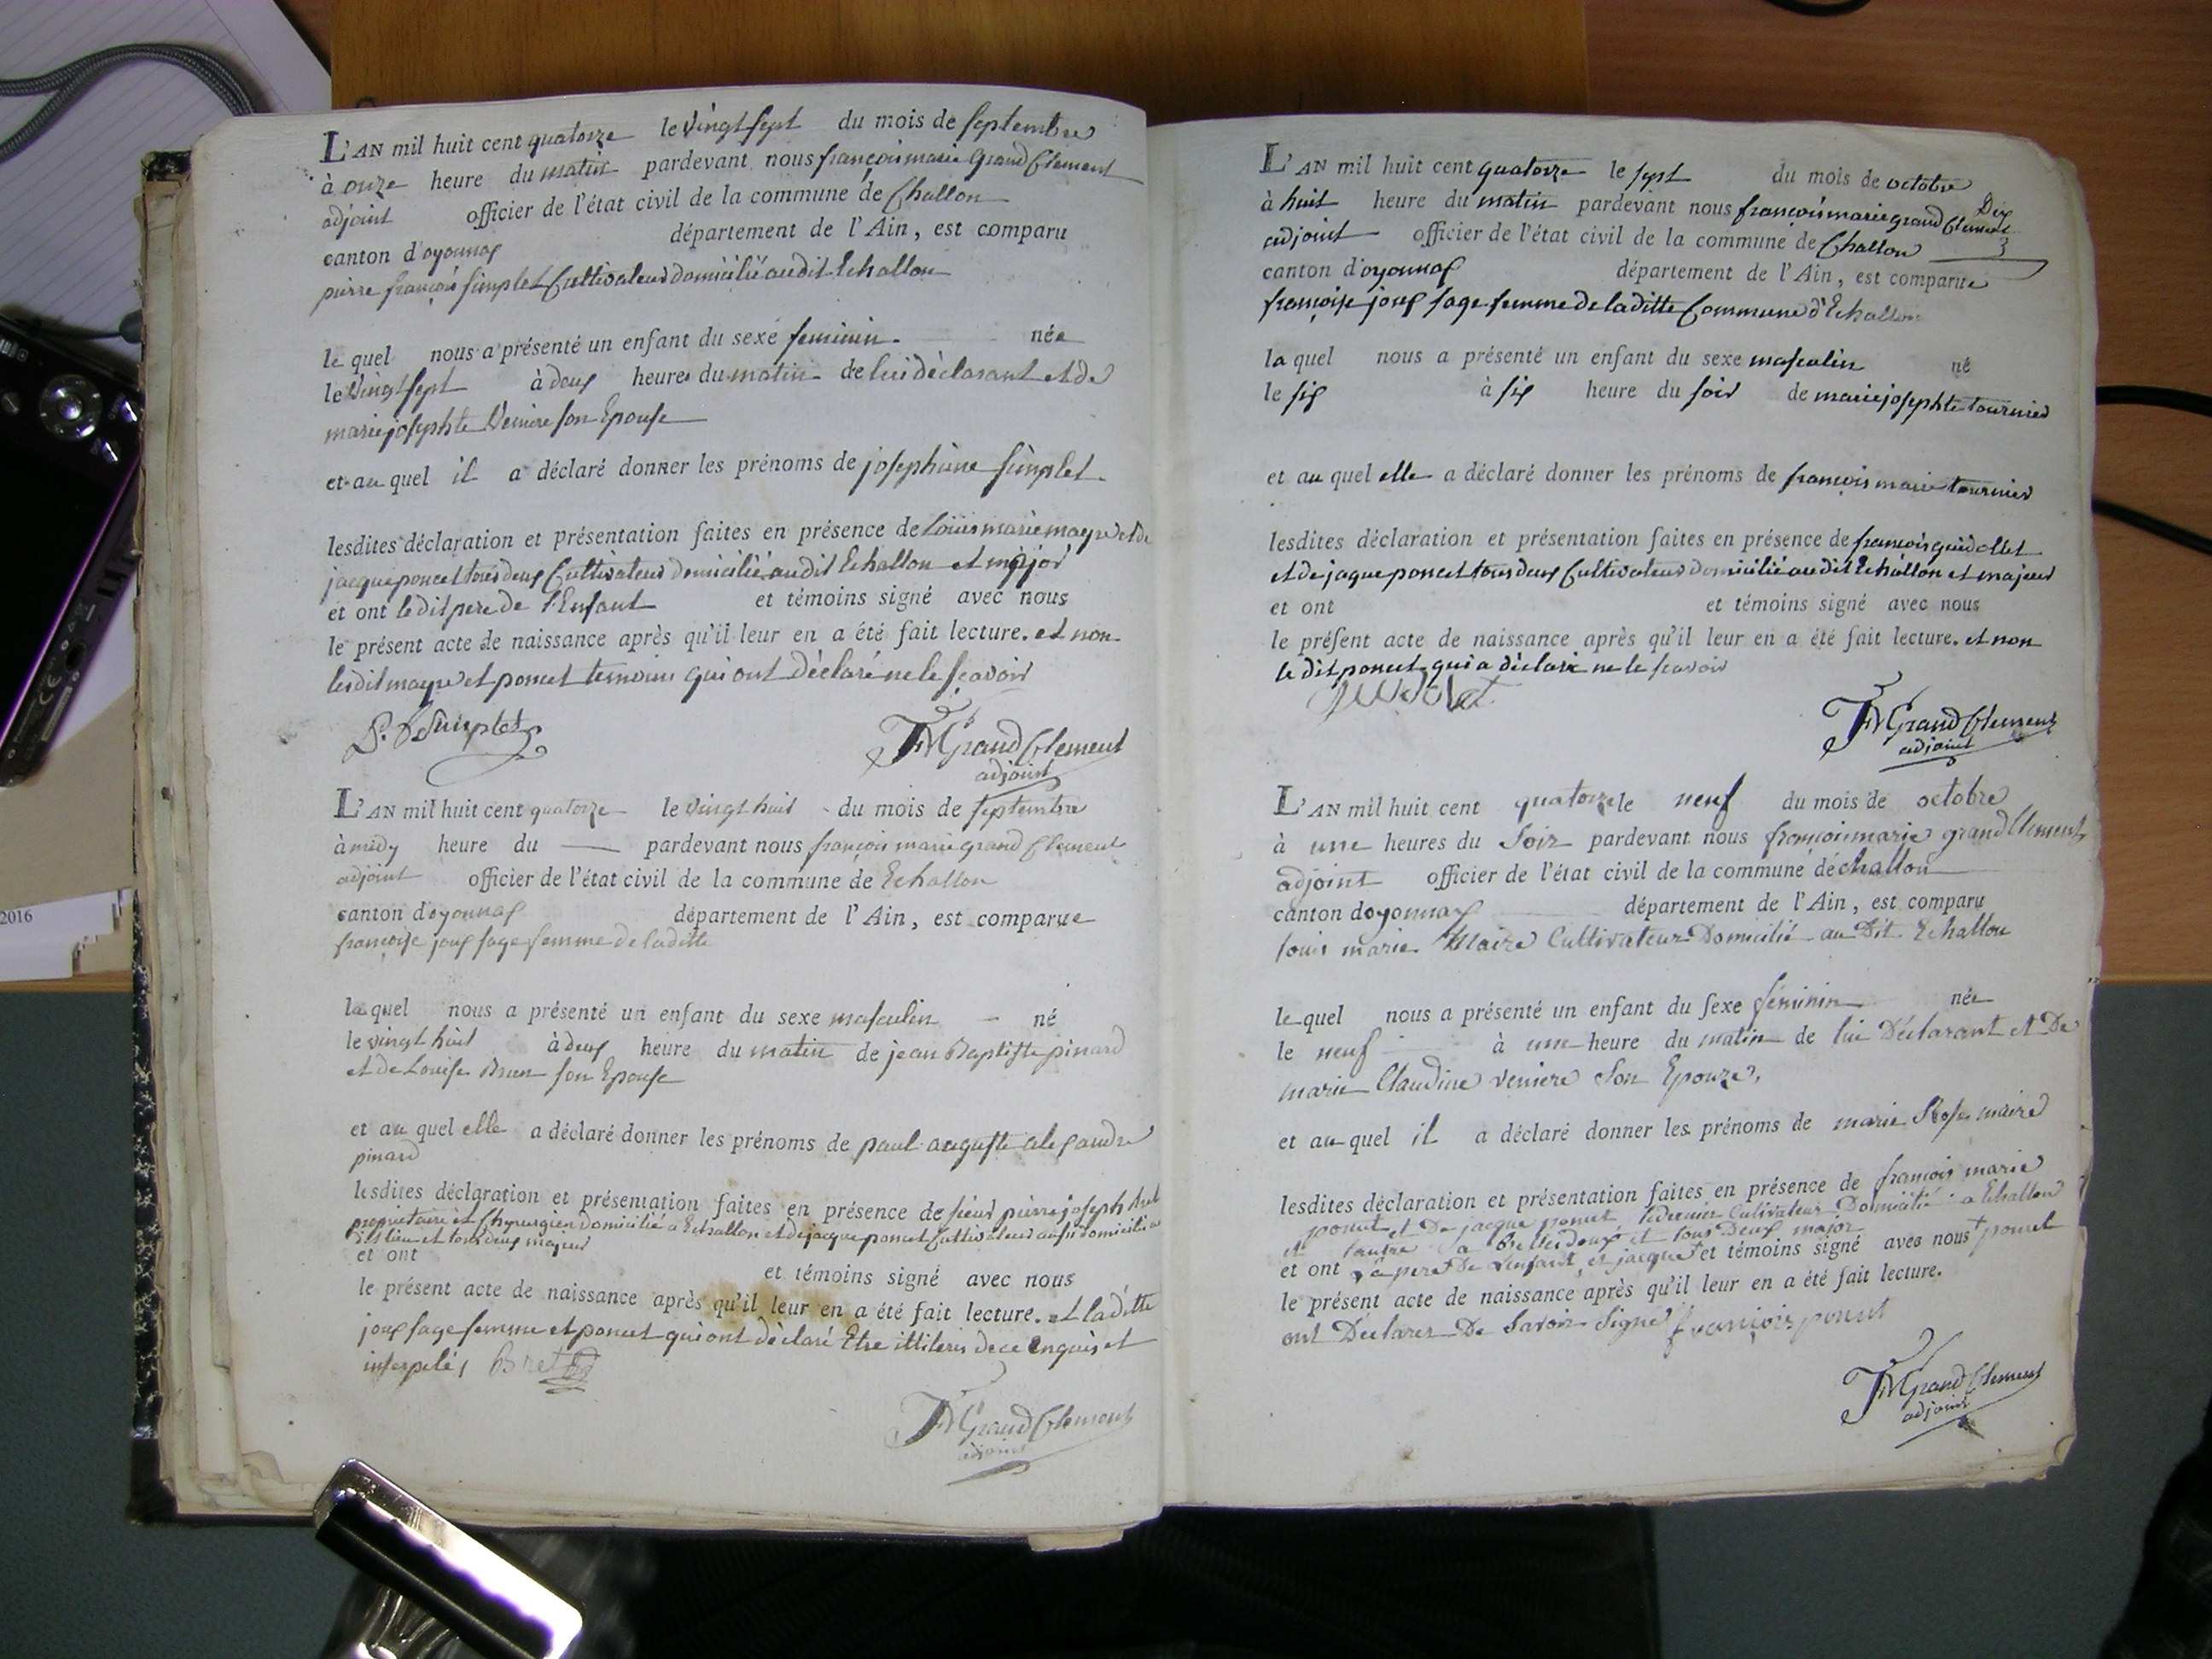 L'AN mil huit cent quatorze le vingt sept du mois de septembre
à onze heure du matin pardevant nous françois marie Grand Clement
adjoint officier de l'état civil de la commune de Challon
canton d'oyonnax département de l'Ain, est comparu
pierre françois simplet Cultivateur domicilié audit Echallon
le quel nous a présenté un enfant du sexe feminin née
le vingt sept à deux heures du matin de lui déclarant et de
marie josephte Veniere son Epouse
et au quel il a déclaré donner les prénoms de josephine simplet
lesdites déclaration et présentation faites en présence de Louis marie mayre et de
jacque poncet tous deux Cultivateur domicilié audit Echallon et major
et ont le dit pere de l'Enfant et témoins signé avec nous
le présent acte de naissance après qu'il leur en a été fait lecture. et non
lesdit mayre et poncet temoins qui ont déclaré ne le sçavoir
P. f Simplet
FM Grand Clement
adjoint
L'AN mil huit cent quatorze le vingt huit du mois de septembre
à midy heure du pardevant nous françois marie grand Clement
adjoint officier de l'état civil de la commune de Echallon
canton d'oyonnax département de l'Ain, est comparue
françoise joux sage femme de laditte
laquel nous a présenté un enfant du sexe masculin né
le vingt huit à deux heure du matin de jean Baptiste pinard
et de Louise Brun son Epouse
et au quel elle a déclaré donner les prénoms de paul auguste alexandre
pinard
lesdites déclaration et présentation faites en présence de sieur pierre joseph
propriétaire et Chyrurgien domicilié a Echallon et de jacque poncet Cultivateur aussi domicilié au
dit lieu et tous deux majeur
et ont et témoins signé avec nous
le présent acte de naissance après qu'il leur en a été fait lecture. et laditte
joux sage femme et poncet qui ont déclaré Etre illiteris de ce enquis et
interpelé, Bret
FM Grand Clement
adjoint
L'AN mil huit cent quatorze le sept du mois de octobre
Dix
3
à huit heure du matin pardevant nous françois marie grand Clement
adjoint officier de l'état civil de la commune de Challon
canton d'oyonnax département de l'Ain, est comparue
françoise joux sage femme de laditte Commune d'Echallon
la quel nous a présenté un enfant du sexe masculin né
le six à six heure du soir de marie josephte tournier
et au quel elle a déclaré donner les prénoms de françois marie tournier
lesdites déclaration et présentation faites en présence de françois guidollet
et de jaque poncet tous deux Cultivateur domicilié audit Echallon et majeur
et ont et témoins signé avec nous
le présent acte de naissance après qu'il leur en a été fait lecture. et non
le dit poncet qui a déclaré ne le scavoir
FM Grand Clement
adjoint
L'AN mil huit cent quatorze le neuf du mois de octobre
à une heures du Soir pardevant nous françois marie grand Clement
adjoint officier de l'état civil de la commune déchallon
canton doyonnax département de l'Ain, est comparu
louis marie Maire Cultivateur Domicilié au Dit Echallon
le quel nous a présenté un enfant du sexe féminin née
le neuf à une heure du matin de lui Déclarant et De
marie Claudine veniere Son Epouze,
et au quel il a déclaré donner les prénoms de marie Rose maire
lesdites déclaration et présentation faites en présence de francois marie
poncet et De jacque poncet, le dernier Cultivateur Domicilié a Echallon
et l'autre a Belleydoux et tous Deux major
et ont Le pere De Lenfant, et jacque poncet et témoins signé avec nous
le présent acte de naissance après qu'il leur en a été fait lecture.
ont Declarer De Savoir Signer françois poncet
FM Grand Clement
adjoint
2016